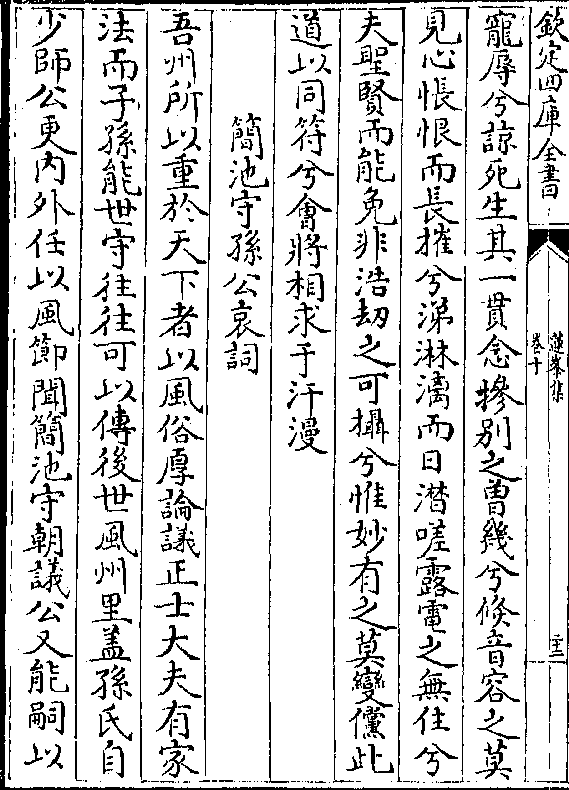 欽定四庫全書
蓮峯集
卷十
二十三
寵辱兮諒死生其一貫念摻別之曾幾兮倐音容之莫
見心悵恨而長摧兮涕淋漓而日潸嗟露電之無住兮
夫聖賢而能免非浩劫之可攝兮惟妙有之莫變儻此
道以同符兮會將相求于汗漫
簡池守孫公哀詞
吾州所以重於天下者以風俗厚論議正士大夫有家
法而子孫能世守往往可以傳後世風州里盖孫氏自
少師公更内外任以風節聞簡池守朝議公又能嗣以